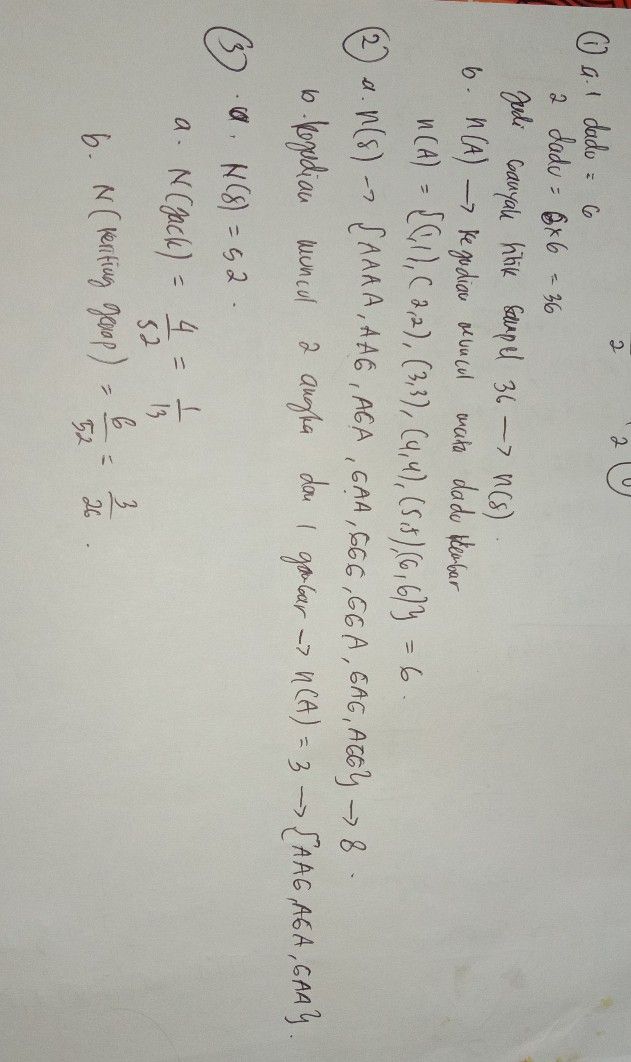 2
2
① a. 1 dadu = 6
2 dadu = 6×6 = 36
Jadi banyak titik sampel 36 → n(S).
b. n(A) → kejadian muncul mata dadu kembar
n(A) = {(1,1), (2,2), (3,3), (4,4), (5,5), (6,6)} = 6.
② a. n(S) → {AAAA, AAG, AGA, GAA, GGG, GGA, GAG, AGG} → 8.
b. Kejadian muncul 2 angka dan 1 gambar → n(A) = 3 → {AAG, AGA, GAA}.
③ . a. N(S) = 52.
a. N(jack) = 4/52 = 1/13
b. N(keriting genap) = 6/52 = 3/26.